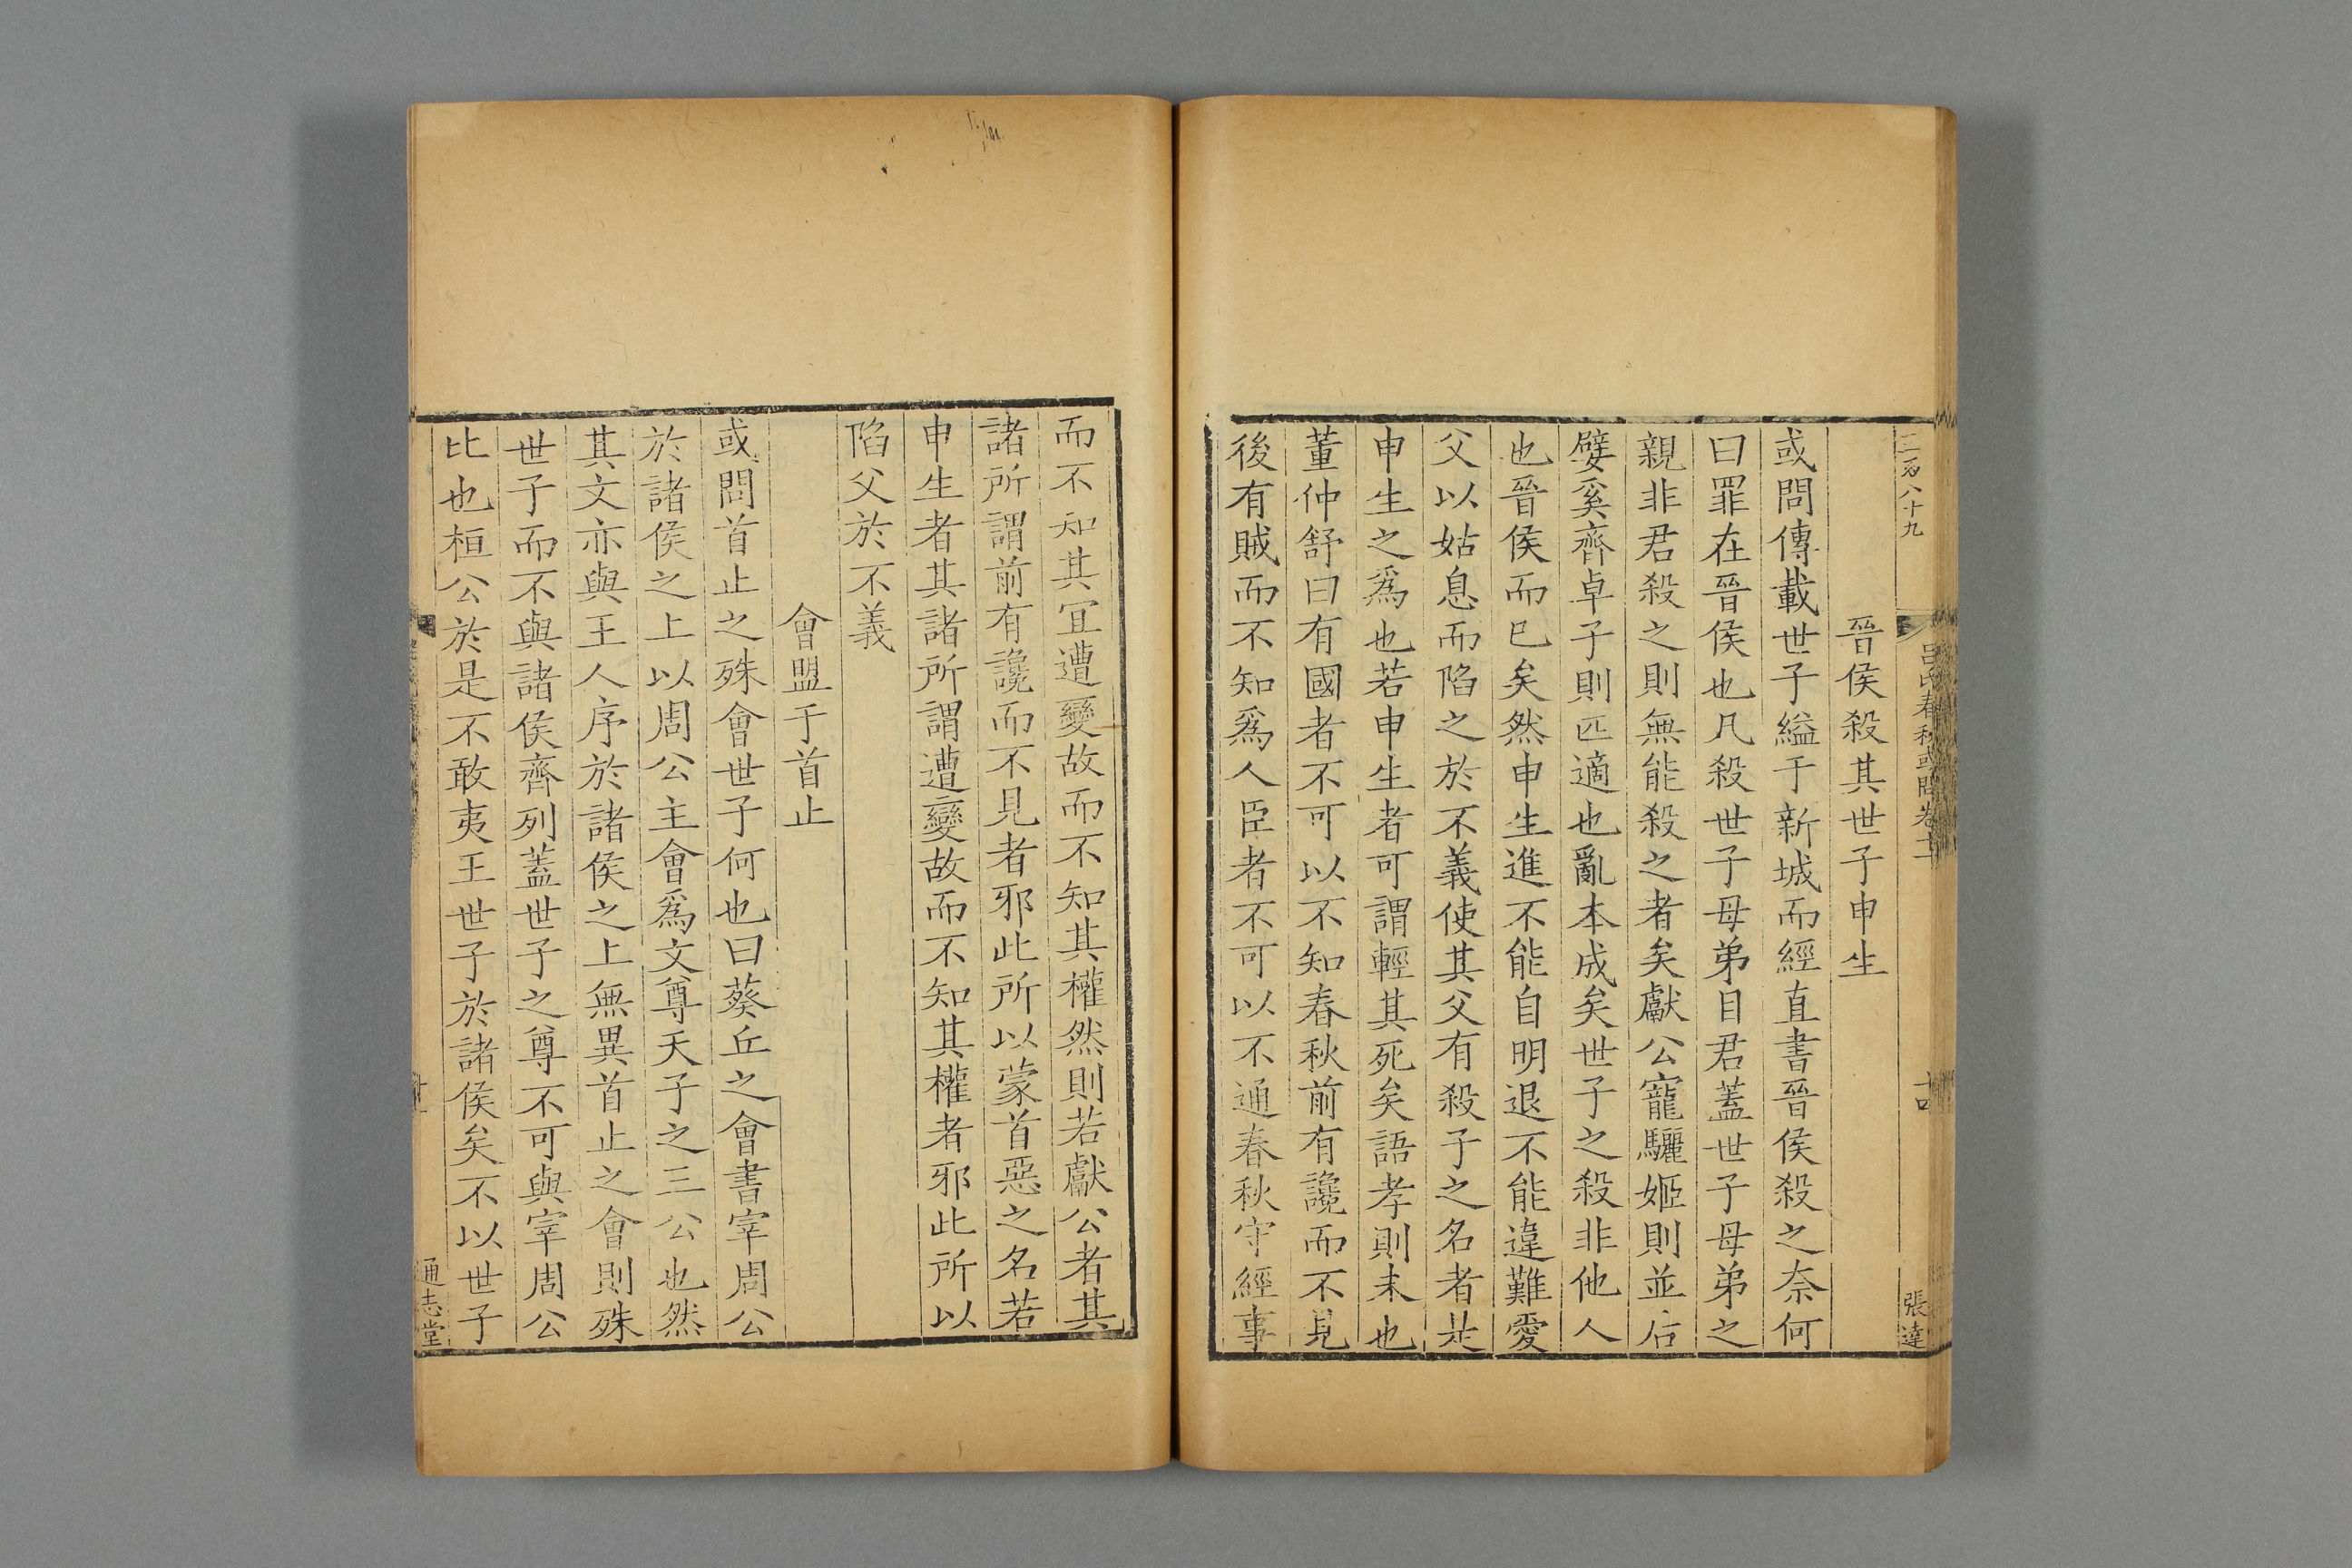 二百八十九
呂氏春秋或問卷十二
十四
張達
晉侯殺其世子申生
或問傳載世子縊于新城而經直書晉侯殺之奈何
曰罪在晉侯也凡殺世子母弟目君蓋世子母弟之
親非君殺之則無能殺之者矣獻公寵驪姬則並后
嬖奚齊卓子則匹適也亂本成矣世子之殺非他人
也晉侯而已矣然申生進不能自明退不能違難愛
父以姑息而陷之於不義使其父有殺子之名者是
申生之為也若申生者可謂輕其死矣語孝則未也
董仲舒曰有國者不可以不知春秋前有讒而不見
後有賊而不知爲人臣者不可以不通春秋守經事
而不知其宜遭變故而不知其權然則若獻公者其
諸所謂前有讒而不見者邪此所以蒙首惡之名若
申生者其諸所謂遭變故而不知其權者邪此所以
陷父於不義
會盟于首止
或問首止之殊會世子何也曰葵丘之會書宰周公
於諸侯之上以周公主會爲文尊天子之三公也然
其文亦與王人序於諸侯之上無異首止之會則殊
世子而不與諸侯齊列蓋世子之尊不可與宰周公
比也桓公於是不敢夷王世子於諸侯矣不以世子
通志堂